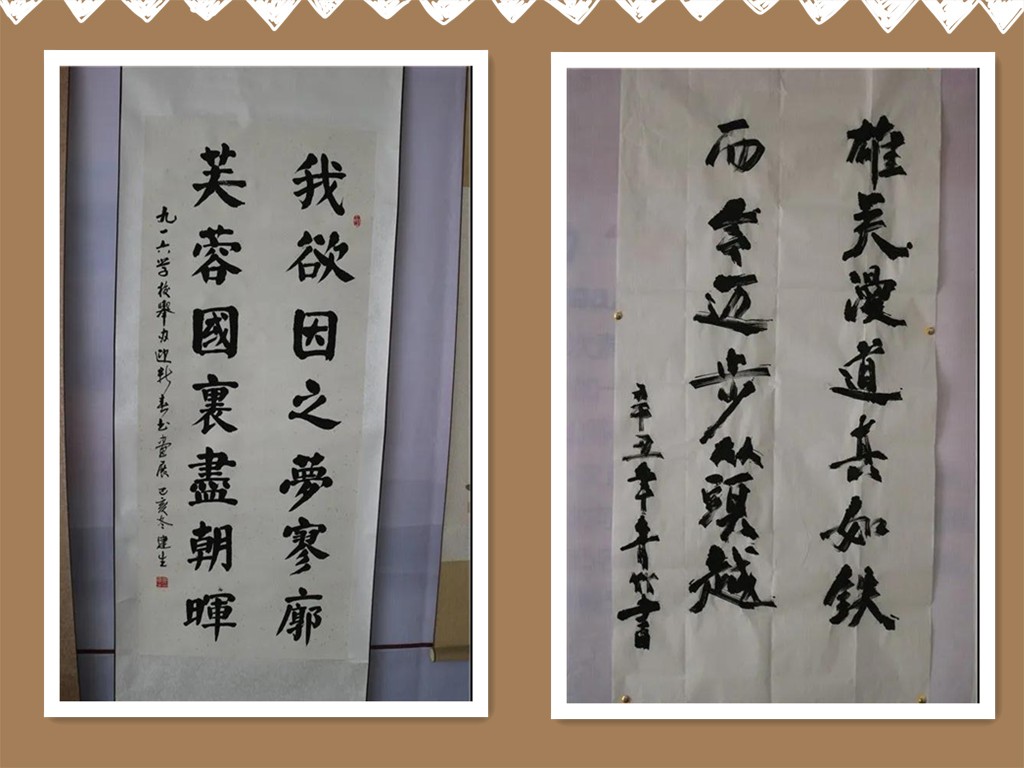 我欲因之夢寥廓
芙蓉國裏盡朝暉
九一六学校舉办迎新春书畫展 己亥冬 建生
雄关漫道真如鉄
而今迈步从頭越
辛丑年青竹書